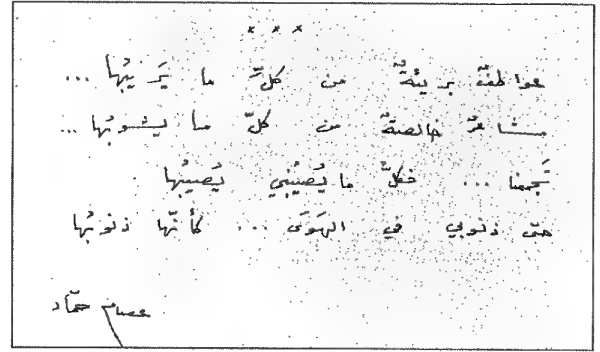 × × ×
عواطفٌ بريئةٌ من كلِّ ما يَريبُها ...
مشاعرٌ خالصةٌ من كلِّ ما يشوبُها ...
تَجمعنا ... فكلّ ما يُصيبُني يُصيبُها
حتى ذنوبي في الهَوَى ... كأنّها ذنوبُها
عصام حمّاد